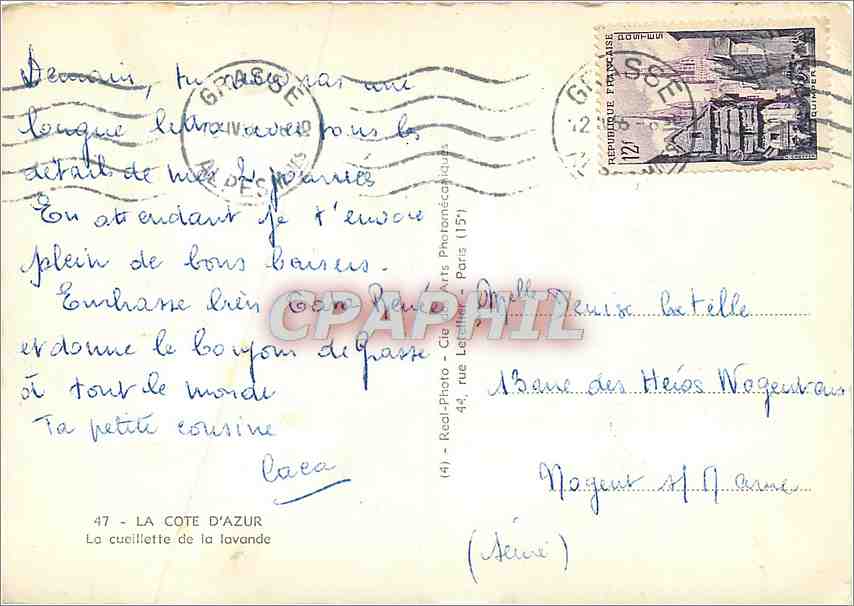 Demain, tu auras par une
longue lettre avec tous les
détail de mes 2 journées
En attendant je t'envoie
plein de bons baisers.
Embrasse bien Renée
et donne le bonjour de Grasse
à tout le monde
Ta petite cousine
47 - LA COTE D'AZUR
La cueillette de la lavande
(4) - Real-Photo - Cie des Arts Photomécaniques
44, rue Letellier - Paris (15e)
GRASSE
ALPES Mmes
GRASSE
REPUBLIQUE FRANÇAISE
POSTES
QUIMPER
12f
CPAPHIL
Melle Denise
13 des Héros Nogentais
Nogent s/ Marne
(Seine)